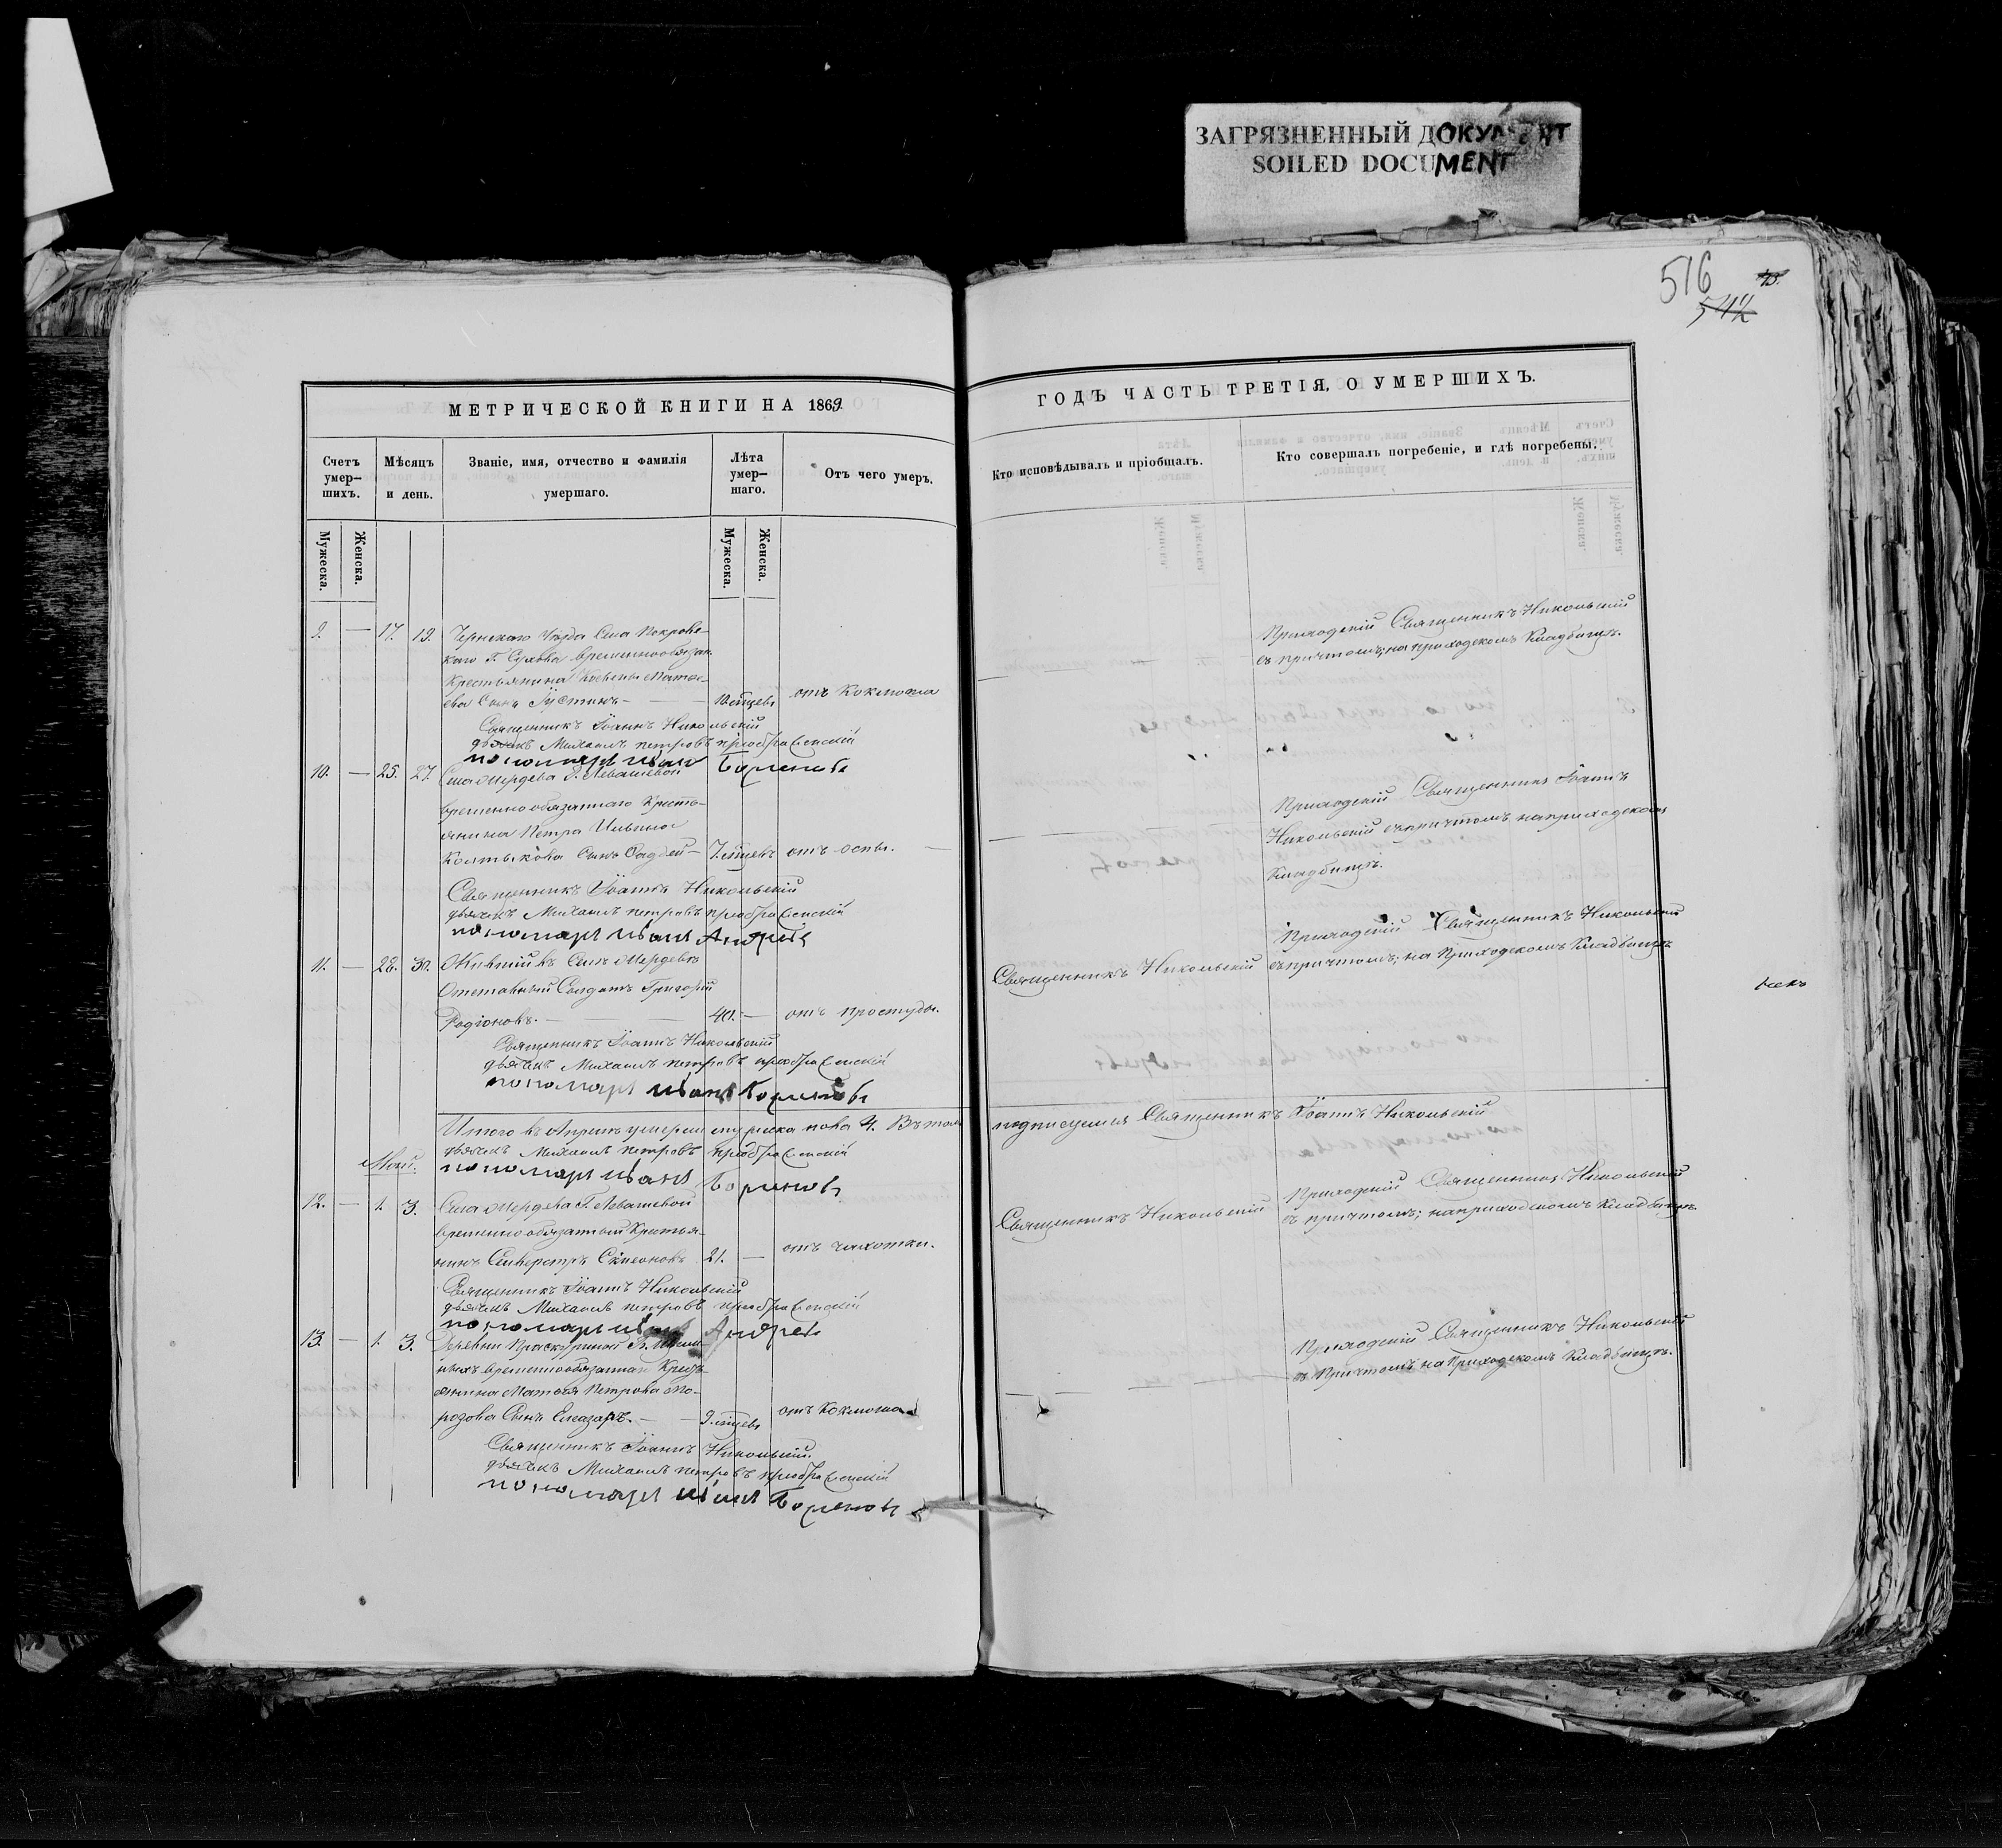 ЗАГРЯЗНЕННЫЙ ДОКУМЕНТ
SOILED DOCUMENT
516
542
МЕТРИЧЕСКОЙ КНИГИ НА 1869
Счетъ умер-шихъ.
Мѣсяцъ и день.
Званіе, имя, отчество и фамилія умершаго.
Лѣта умер-шаго.
Отъ чего умеръ.
Мужеска.
Женска.
Мужеска.
Женска.
9. — 17. 19. Чернскаго Уѣзда Села Покровс-
каго Г. Сухова временнообязан.
Крестьянина Матве-
ева Сынъ Іустинъ — 10. мѣсяцевъ отъ Коклюша
Священникъ Іоаннъ Никольскій
дьячекъ Михаилъ Петровъ Преображенскій
пономарь Иванъ
10. — 25. 27. Села Мердева Г. Левашевой
временнообязаннаго Кресть-
янина Петра Ильина
Колтыкова Сынъ Фаддей — 7. мѣсяцевъ отъ оспы. —
Священникъ Іоаннъ Никольскій
дьячекъ Михаилъ Петровъ Преображенскій
пономарь Иванъ Андреевъ
11. — 28. 30. Жившій въ Селѣ Мердевѣ
Отставный Солдатъ Григорій
Родіоновъ. — 40. — отъ простуды.
Священникъ Іоаннъ Никольскій
дьячекъ Михаилъ Петровъ Преображенскій
пономарь Иванъ
Итого въ Апрѣлѣ умерли мужеска пола 4. Въ томъ
дьячекъ Михаилъ Петровъ Преображенскій
Май. пономарь Иванъ
12. — 1. 3. Села Мердева Г. Левашевой
временнообязанный Крестья-
нинъ Сильвестръ Симеоновъ 21. — отъ чахотки.
Священникъ Іоаннъ Никольскій
дьячекъ Михаилъ Петровъ Преображенскій
пономарь Иванъ Андреевъ
13. — 1. 3. Деревни
ныхъ временнообязаннаго Кресть
янина Матвея Петрова Мо-
розова Сынъ Елеазаръ. — 9. мѣсяцевъ отъ Коклюша
Священникъ Іоаннъ Никольскій.
дьячекъ Михаилъ Петровъ Преображенскій
пономарь Иванъ
ГОДЪ ЧАСТЬ ТРЕТІЯ, О УМЕРШИХЪ.
Кто исповѣдывалъ и пріобщалъ.
Кто совершалъ погребеніе, и гдѣ погребены.
— Приходскій Священникъ Никольскій
съ причтомъ; на приходскомъ Кладбищѣ.
— Приходскій Священникъ Іоаннъ
Никольскій съ причтомъ на приходскомъ
Кладбищѣ.
Приходскій Священникъ Никольскій
Священникъ Никольскій съ причтомъ; на Приходскомъ Кладбищѣ
подписуемся Священникъ Іоаннъ Никольскій
Приходскій Священникъ Никольскій
Священникъ Никольскій съ причтомъ; на приходскомъ Кладбищѣ.
Приходскій Священникъ Никольскій
съ Причтомъ на Приходскомъ Кладбищѣ.